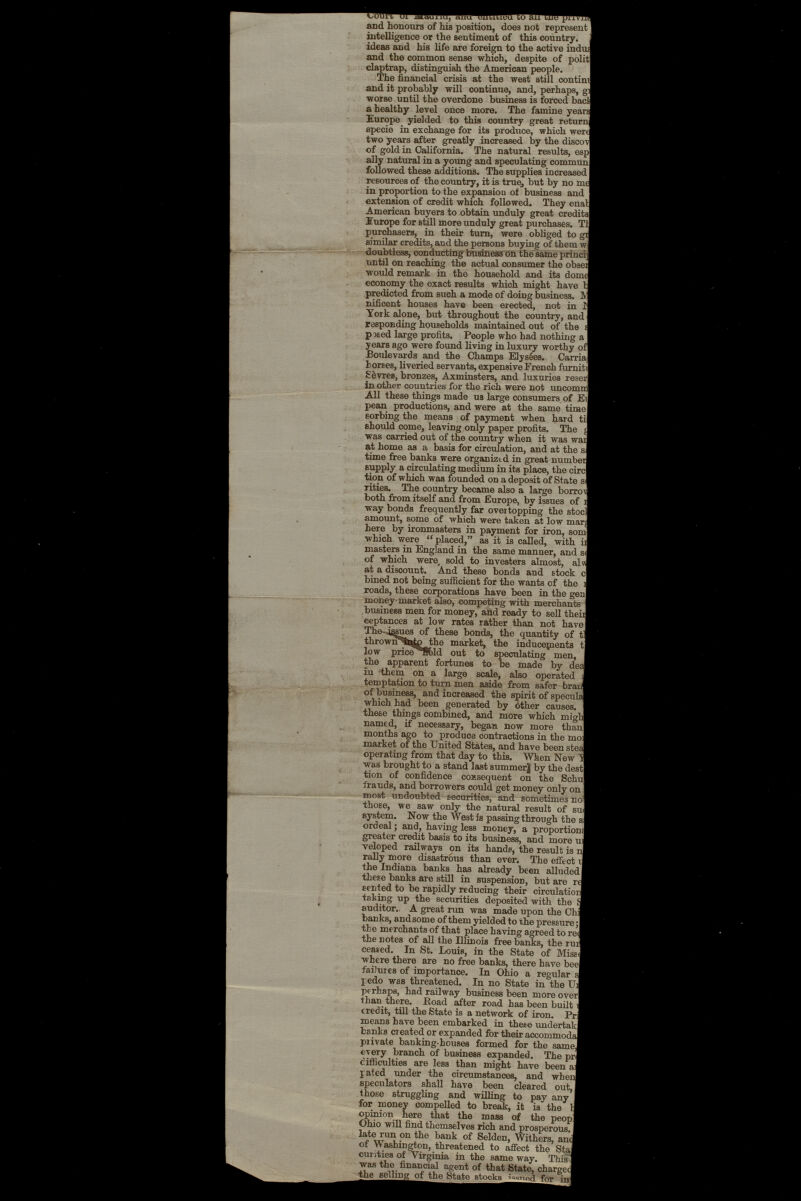 Court of Madrid, and entitled to all the
and honours of his position, does not represent
intelligence or the sentiment of this country.
ideas and his life are foreign to the active indu
and the common sense which, despite of polit
claptrap, distinguish the American people.
The financial crisis at the west still contin
and it probably will continue, and, perhaps, g
worse until the overdone business is forced bac
a healthy level once more. The famine year
Europe yielded to this country great return
specie in exchange for its produce, which wer
two years after greatly increased by the discov
of gold in California. The natural results, esp
ally natural in a young and speculating commun
followed these additions. The supplies increased
resources of the country, it is true, but by no me
in proportion to the expansion of business and
extension of credit which followed. They enab
American buyers to obtain unduly great credits
Europe for still more unduly great purchases. T
purchasers, in their turn, were obliged to g
similar credits, and the persons buying of them w
doubtless, conducting business on the same princi
until on reaching the actual consumer the obser
would remark in the household and its dome
economy the exact results which might have b
predicted from such a mode of doing business. M
nificent houses have been erected, not in N
York alone, but throughout the country, and
responding households maintained out of the s
posed large profits. People who had nothing a
years ago were found living in luxury worthy of
Boulevards and the Champs Elysées. Carria
horses, liveried servants, expensive French furnit
Sèvres, bronzes, Axminsters, and luxuries reser
in other countries for the rich were not uncomm
All these things made us large consumers of Eu
pean productions, and were at the same time
sorbing the means of payment when hard ti
should come, leaving only paper profits. The g
was carried out of the country when it was wan
at home as a basis for circulation, and at the s
time free banks were organized in great number
supply a circulating medium in its place, the circ
tion of which was founded on a deposit of State se
rities. The country became also a large borrow
both from itself and from Europe, by issues of r
way bonds frequently far overtopping the stoc
amount, some of which were taken at low marg
here by ironmasters in payment for iron, som
which were "placed," as it is called, with i
masters in England in the same manner, and s
of which were sold to investers almost, alw
at a discount. And these bonds and stock c
bined not being sufficient for the wants of the r
roads, these corporations have been in the gen
money-market also, competing with merchants
business men for money, and ready to sell their
ceptances at low rates rather than not have
The issues of these bonds, the quantity of t
thrown into the market, the inducements t
low price held out to speculating men,
the apparent fortunes to be made by dea
in them on a large scale, also operated
temptation to turn men aside from safer bran
of business, and increased the spirit of specula
which had been generated by other causes.
these things combined, and more which migh
named, if necessary, began now more than
months ago to produce contractions in the mon
market of the United States, and have been stea
operating from that day to this. When New Y
was brought to a stand last summer by the dest
tion of confidence consequent on the Schu
frauds, and borrowers could get money only on
most undoubted securities, and sometimes no
those, we saw only the natural result of su
system. Now the West is passing through the s
ordeal; and, having less money, a proportion
greater credit basis to its business, and more u
veloped railways on its hands, the result is n
rally more disastrous than ever. The effect u
the Indiana banks has already been alluded
these banks are still in suspension, but are re
sented to be rapidly reducing their circulation
taking up the securities deposited with the S
auditor. A great run was made upon the Chi
banks, and some of them yielded to the pressure;
the merchants of that place having agreed to rec
the notes of all the Illinois free banks, the run
ceased. In St. Louis, in the State of Misso
where there are no free banks, there have bee
failures of importance. In Ohio a regular s
pedo was threatened. In no State in the Un
perhaps, had railway business been more over
than there. Road after road has been built
credit, till the State is a network of iron. Pri
means have been embarked in these undertak
banks created or expanded for their accommoda
private banking-houses formed for the same,
every branch of business expanded. The pr
difficulties are less than might have been a
pated under the circumstances, and when
speculators shall have been cleared out,
those struggling and willing to pay any
for money compelled to break, it is the
opinion here that the mass of the peop
Ohio will find themselves rich and prosperous,
late run on the bank of Selden, Withers, and
of Washington, threatened to affect the Sta
curities of Virginia in the same way. This
was the financial agent of that State, charged
the selling of the State stocks issued for in